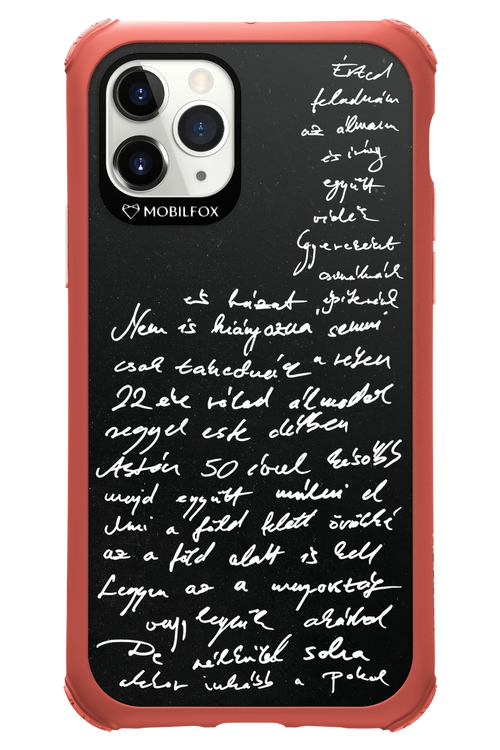 MOBILFOX
Érted
feladnám
az álmom
és így
együtt
vidék
Gyereket
csinálnánk
és házat építenénk
Nem is hiányozna semmi
csak takednék a részem
22 éve rólad álmodok
reggel este délben
Aztán 50 évvel később
majd együtt múlni el
Ami a föld felett örökké
az a föld alatt is kell
Legyen az a mennyország
vagy legyünk akárhol
De nélküled soha
akkor inkább a pokol